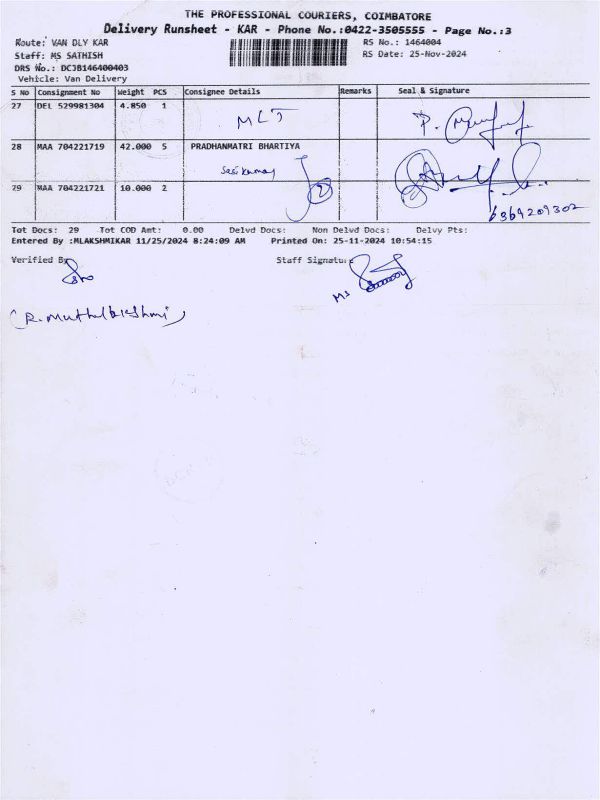 THE PROFESSIONAL COURIERS, COIMBATORE
Delivery Runsheet - KAR - Phone No.:0422-3505555 - Page No.:3
Route: VAN DLY KAR
RS No.: 1464004
Staff: MS SATHISH
RS Date: 25-Nov-2024
DRS No.: DCJB146400403
Vehicle: Van Delivery
S No Consignment No Weight PCS Consignee Details Remarks Seal & Signature
27 DEL 529981304 4.850 1
28 MAA 704221719 42.000 5 PRADHANMATRI BHARTIYA
Sasikumar
29 MAA 704221721 10.000 2
2
6369209302
Tot Docs: 29 Tot COD Amt: 0.00 Delvd Docs: Non Delvd Docs: Delvy Pts:
Entered By :MLAKSHMIKAR 11/25/2024 8:24:09 AM Printed On: 25-11-2024 10:54:15
Verified By
Staff Signature
MS